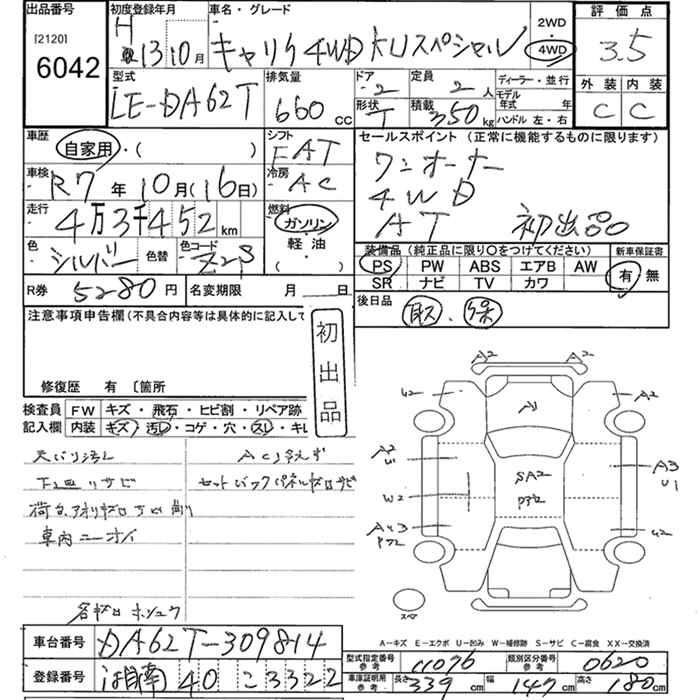 出品番号 初度登録年月 車名・グレード 評価点
[2120] H 2WD
6042 13年10月 キャリイ 4WD KUスペシャル 4WD 3.5
型式 排気量 ドア 定員 ディーラー・並行 外装 内装
LE-DA62T 660 CC 2 2人 モデル年式 年
形状 T 積載 350kg ハンドル 左・右 C C
車歴 シフト セールスポイント (正常に機能するものに限ります)
自家用・( ) FAT ワンオーナー
車検 冷房
R7年10月(16日) AC 4WD
走行 燃料
4万3千452km ガソリン AT 初出品
色 色替 色コード 軽油・
シルバー Z2S ( )
装備品 (純正品に限り○をつけてください) 新車保証書
PS PW ABS エアB AW 有 無
SR ナビ TV カワ
R券 5280円 名変期限 月 日
後日品 取・保
注意事項申告欄 (不具合内容等は具体的に記入して
初出品
修復歴 有 〔箇所
検査員 FW キズ・飛石・ヒビ割・リペア跡
記入欄 内装 キズ・汚レ・コゲ・穴・スレ・キレ
天バリ汚レ ACリ冷えず
下廻リサビ
車内ニーオイ
A2 A2
U2 A1 A2
A2 U1 A3 U1
SA2
W2
U2
スペア
A-キズ E-エクボ U-凹み W-補修跡 S-サビ C-腐食 XX-交換済
車台番号 DA62T-309814
型式指定番号 参考 11076 類別区分番号 参考 0620
登録番号 湘南 40 こ 3322
車庫証明用 参考 長さ 339cm 幅 147cm 高さ 180cm